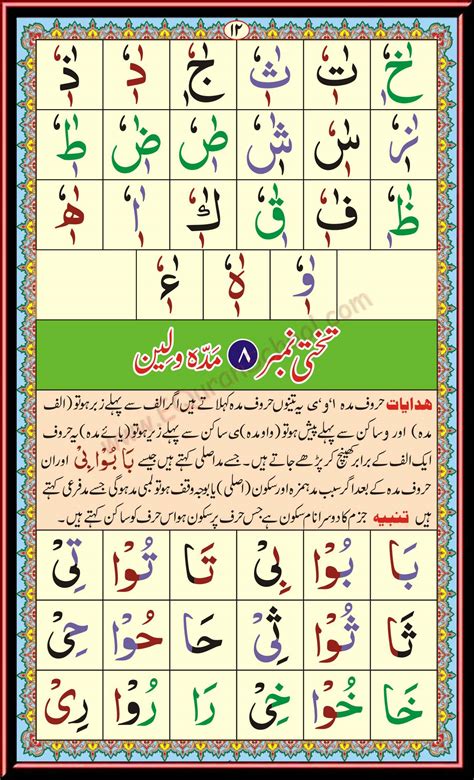 ۱۲
خٰٖٗ تٰٖٗ ثٰٖٗ جٰٖٗ دٰٖٗ ذٰٖٗ
زٰٖٗ سٰٖٗ شٰٖٗ صٰٖٗ ضٰٖٗ طٰٖٗ
ظٰٖٗ فٰٖٗ قٰٖٗ كٰٖٗ اٰٖٗ ھٰٖٗ
وٰٖٗ هٰٖٗ ءٰٖٗ
تختی نمبر ۸ مدّہ ولین
ھدایات حروف مدہ ا'و'ی یہ تینوں حروف مدہ کہلاتے ہیں اگر الف سے پہلے زبر ہو تو (الف
مدہ) اور و ساکن سے پہلے پیش ہو تو (واو مدہ) ی ساکن سے پہلے زیر ہو تو (یائے مدہ) یہ حروف
ایک الف کے برابر کھینچ کر پڑھے جاتے ہیں۔ جسے مد اصلی کہتے ہیں جیسے بَا بُوْا بِیْ اور ان
حروف مدہ کے بعد اگر سبب مد ہمزہ اور سکون (اصلی) یا بوجہ وقف ہو تو لمبی مد ہوگی جسے مد فرعی کہتے
ہیں تنبیہ جزم کا دوسرا نام سکون ہے جس حرف پر سکون ہو اس حرف کو ساکن کہتے ہیں۔
بَا بُوْا بِیْ تَا تُوْا تِیْ
ثَا ثُوْا ثِیْ حَا حُوْا حِیْ
خَا خُوْا خِیْ رَا رُوْا رِیْ